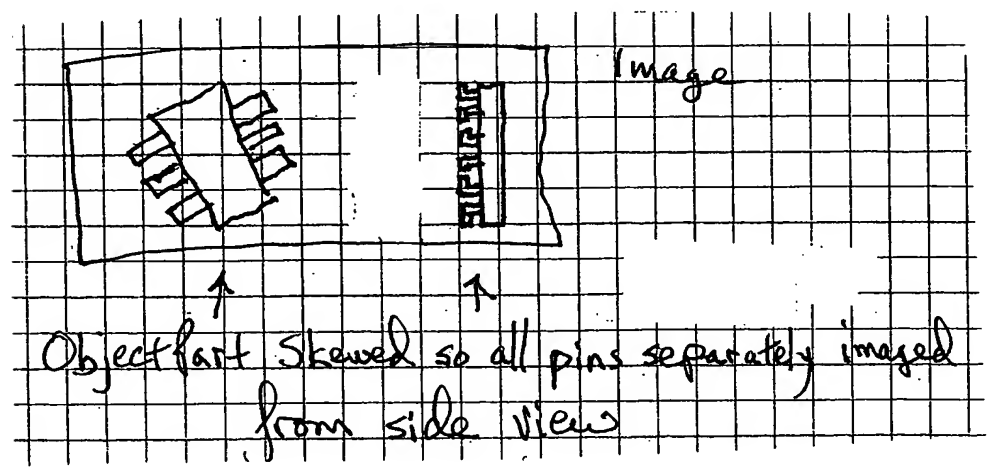 Image
Object Part Skewed so all pins separately imaged
from side view